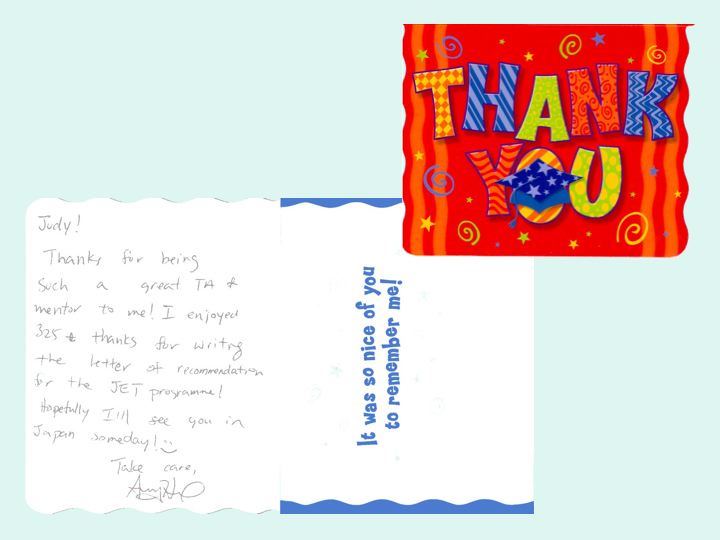 THANK
YOU
Judy!
Thanks for being
such a great TA &
mentor to me! I enjoyed
325 & thanks for writing
the letter of recommendation
for the JET programme!
Hopefully I'll see you in
Japan someday!
Take care,
It was so nice of you
to remember me!